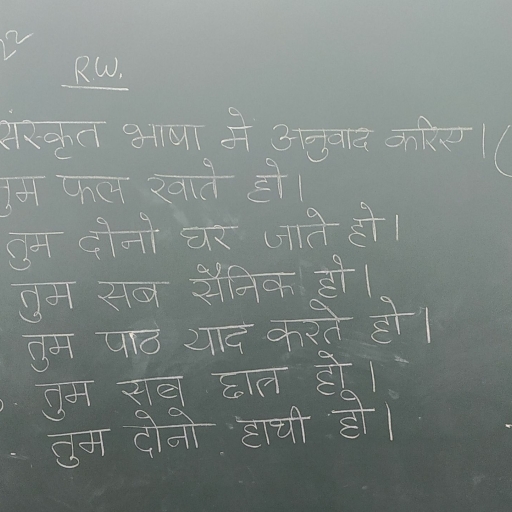 22
R.W.
संस्कृत भाषा में अनुवाद करिए । (
तुम फल खाते हो ।
तुम दोनो घर जाते हो ।
तुम सब सैनिक हो ।
तुम पाठ याद करते हो ।
तुम सब छात्र हो ।
तुम दोनो हाथी हो ।